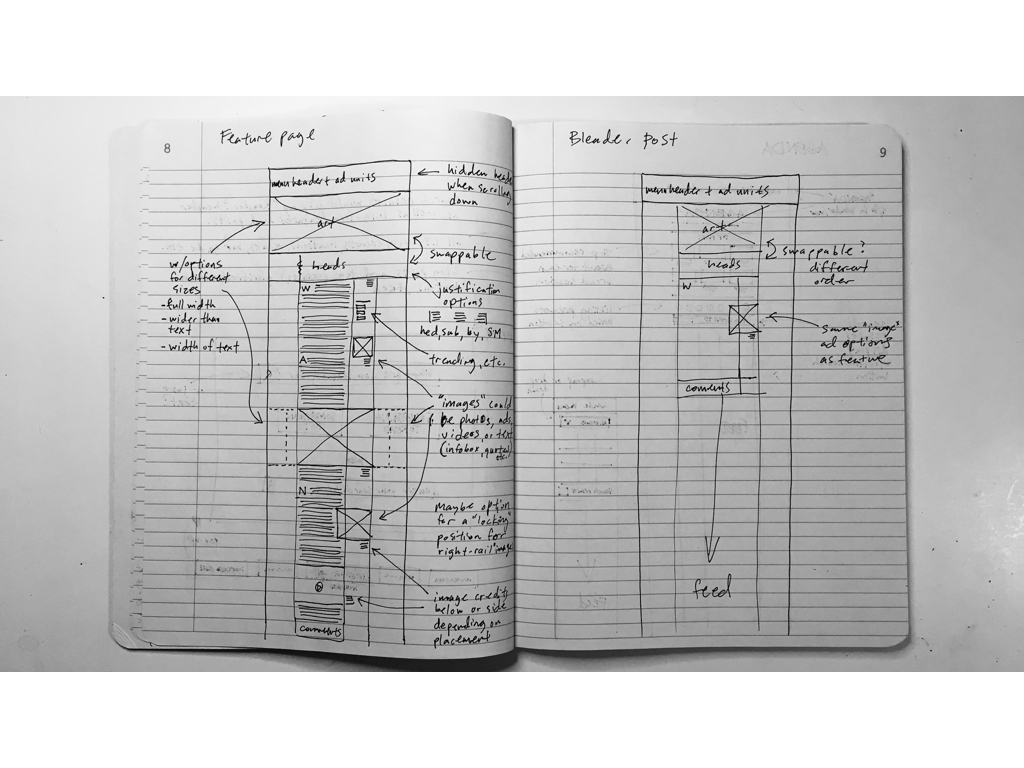 8
Feature page
menu header + ad units
art
heads
hidden header
when scrolling
down
swappable
justification
options
hed, sub, by, SM
trending, etc.
w/options
for different
sizes
- full width
- wider than
text
- width of text
W
A
"images" could
be photos, ads,
videos, or text
(infobox, quotes,
etc.
N
Maybe option
for a "locking"
position for
right-rail "image"
image credits
below or side
depending on
placement
comments
9
Blender post
menu header + ad units
art
heads
swappable?
different
order
W
same "image"
ad options
as feature
comments
feed